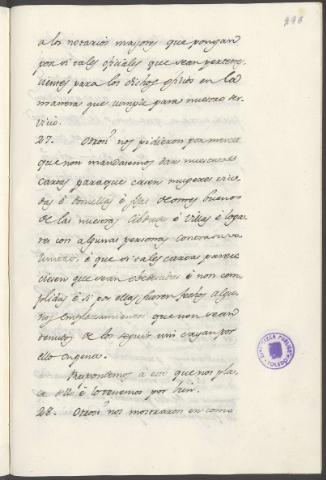 298
a los notarios mayores que pongan
por si tales oficiales que sean pertene-
cientes para los dichos oficios en la
manera que cumple para nuestro ser-
vicio.
27. Otrosi nos pidieron por merced
que non mandasemos dar nuestras
cartas para que casen mugeres viu-
das é doncellas é fijas de omes buenos
de las nuestras Cibdades é villas é loga-
res con algunas personas contra su vo
luntad: é que si tales cartas pares-
ciesen que sean obedecidas é non com-
plidas é si por ellas fueren fechos algu-
nos emplazamientos que non sean
tenudos de los seguir nin cayan por
ello en pena.
Respondemos á esto que nos pla-
ce dello é lo tenemos por bien.
28. Otrosi nos mostraron en como
BIBLIOTECA PUBLICA
TOLEDO